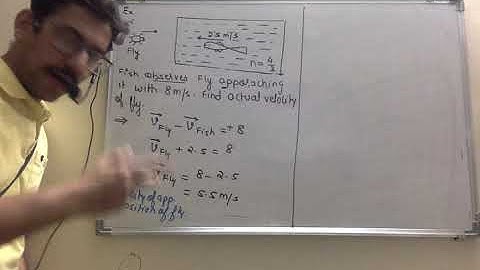 Ex
Fly
2.5 m/s
n = 4/3
Fish observes Fly approaching
it with 8 m/s. Find actual velocity
of fly.
⇒ V⃗Fly − V⃗Fish = +8
V⃗Fly + 2.5 = 8
V⃗Fly = 8 − 2.5
= 5.5 m/s
of app.
position of fly